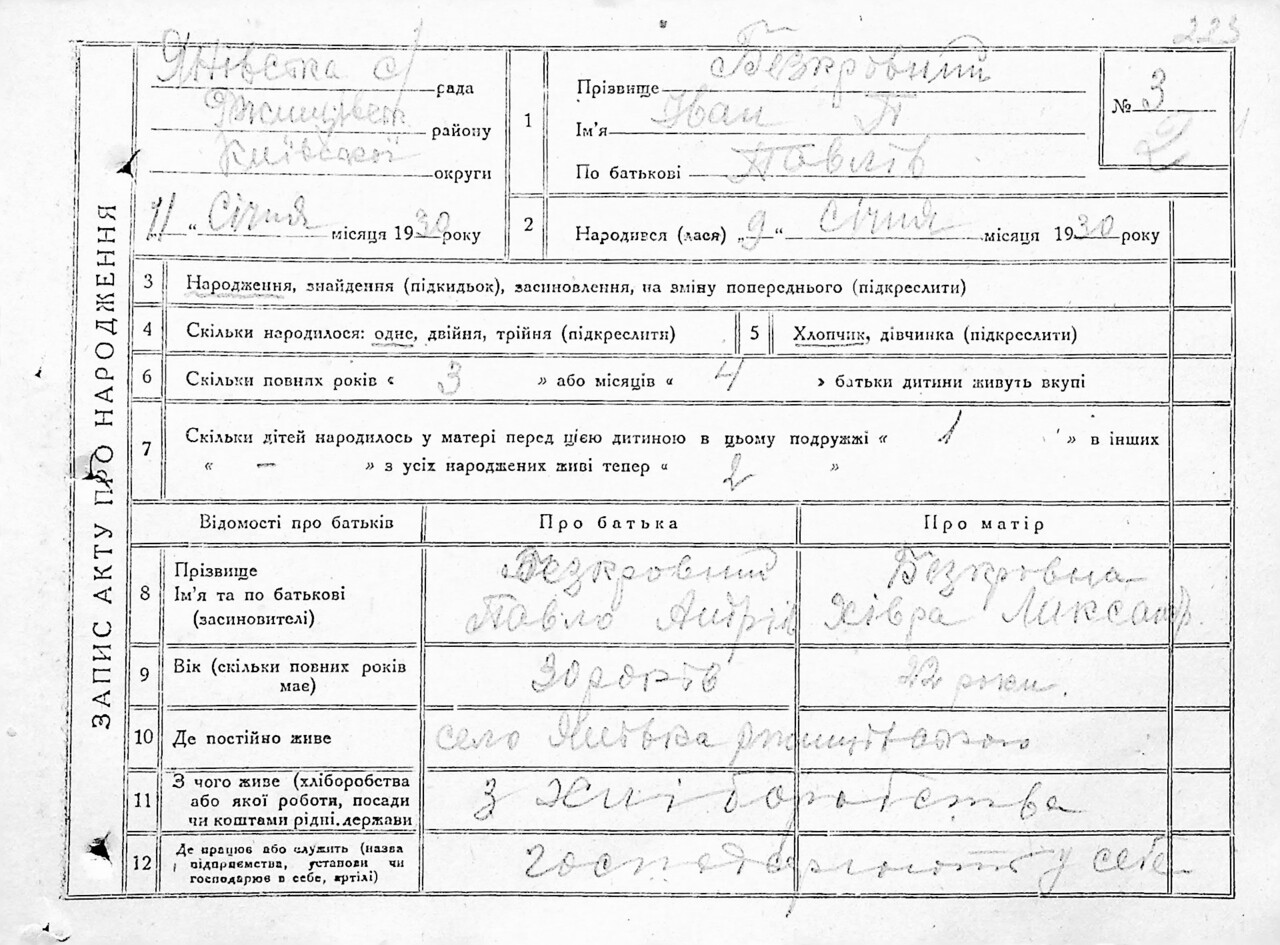 223
ЗАПИС АКТУ ПРО НАРОДЖЕННЯ
Янівска с/рада
району
Київської округи
"11" Січня місяця 1930 року
1
Прізвище Безкровний
Ім'я Іван П
По батькові Павлів
№ 3
2
2
Народився (лася) „9“ січня місяця 1930 року
3 Народження, знайдення (підкидьок), засиновлення, на зміну попереднього (підкреслити)
4 Скільки народилося: одне, двійня, трійня (підкреслити)
5 Хлопчик, дівчинка (підкреслити)
6 Скільки повних років « 3 » або місяців « 4 » батьки дитини живуть вкупі
7 Скільки дітей народилось у матері перед цією дитиною в цьому подружжі « 1 » в інших
« — » з усіх народжених живі тепер « 2 »
Відомості про батьків Про батька Про матір
8 Прізвище
Ім'я та по батькові
(засиновителі)
Безкровний
Павло Андрів
Безкровна
Хівра Ликсандр.
9 Вік (скільки повних років
має)
30 років
22 роки.
10 Де постійно живе
село
11 З чого живе (хліборобства
або якої роботи, посади
чи коштами рідні, держави
з хліборобства
12 Де працює або служить (назва
підприємства, установи чи
господарює в себе, артілі)
господарюють у себе